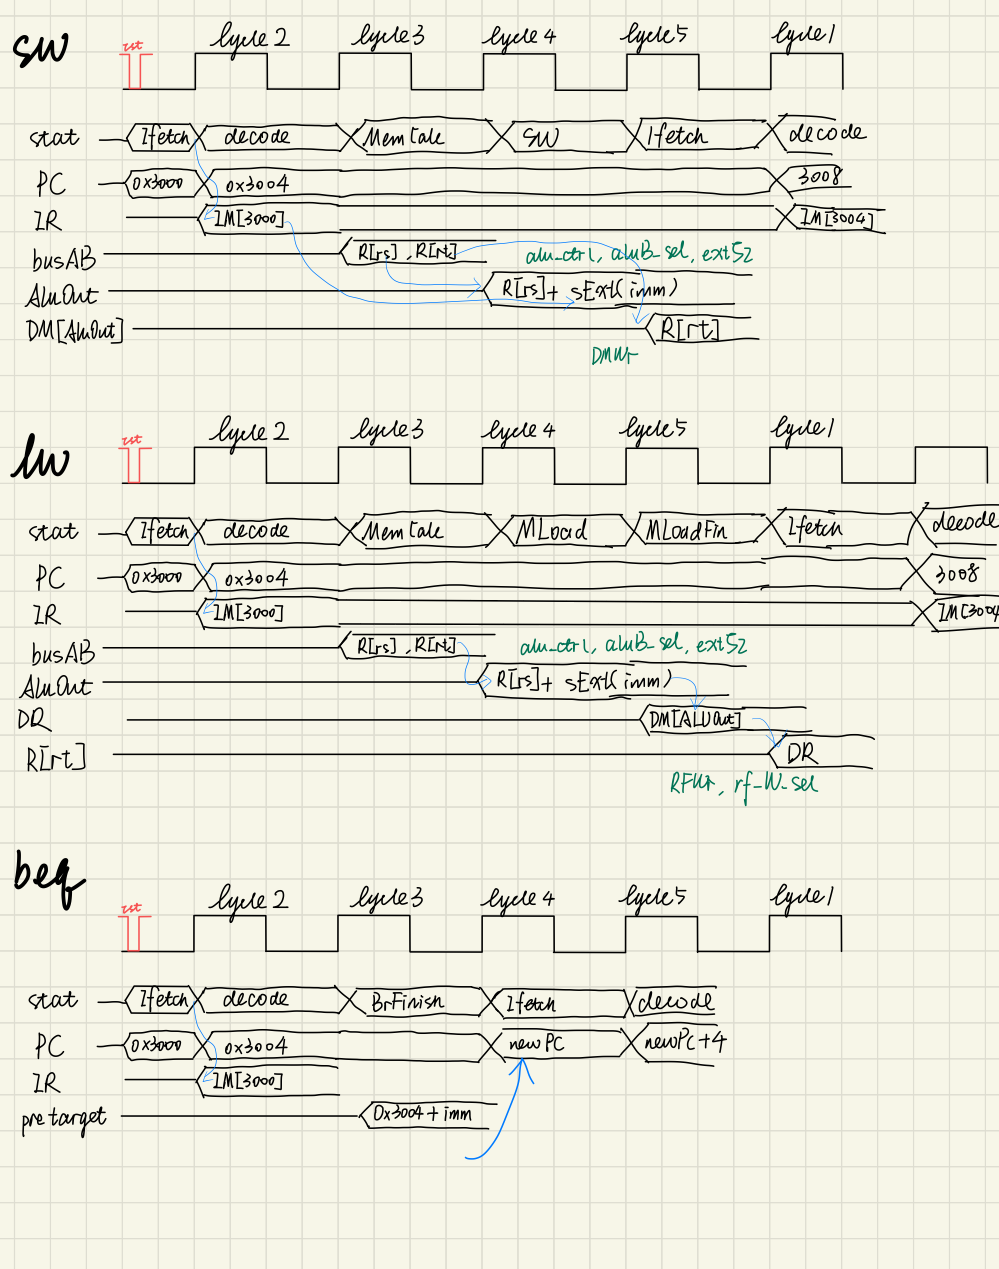 sw
rst Cycle 2 Cycle 3 Cycle 4 Cycle 5 Cycle 1
stat Ifetch decode MemCalc SW Ifetch decode
PC 0x3000 0x3004 3008
IR IM[3000] IM[3004]
busAB R[rs], R[rt] alu_ctrl, aluB_sel, ext52
AluOut R[rs]+ sExt(imm)
DM[AluOut] R[rt]
DMWr
lw
rst Cycle 2 Cycle 3 Cycle 4 Cycle 5 Cycle 1
stat Ifetch decode MemCalc MLoad MLoadFin Ifetch decode
PC 0x3000 0x3004 3008
IR IM[3000] IM[3004
busAB R[rs], R[rt] alu_ctrl, aluB_sel, ext52
AluOut R[rs]+ sExt(imm)
DR DM[ALUOut]
R[rt] DR
RFWr, rf_W_sel
beq
rst Cycle 2 Cycle 3 Cycle 4 Cycle 5 Cycle 1
stat Ifetch decode BrFinish Ifetch decode
PC 0x3000 0x3004 newPC newPC+4
IR IM[3000]
pretarget 0x3004+imm